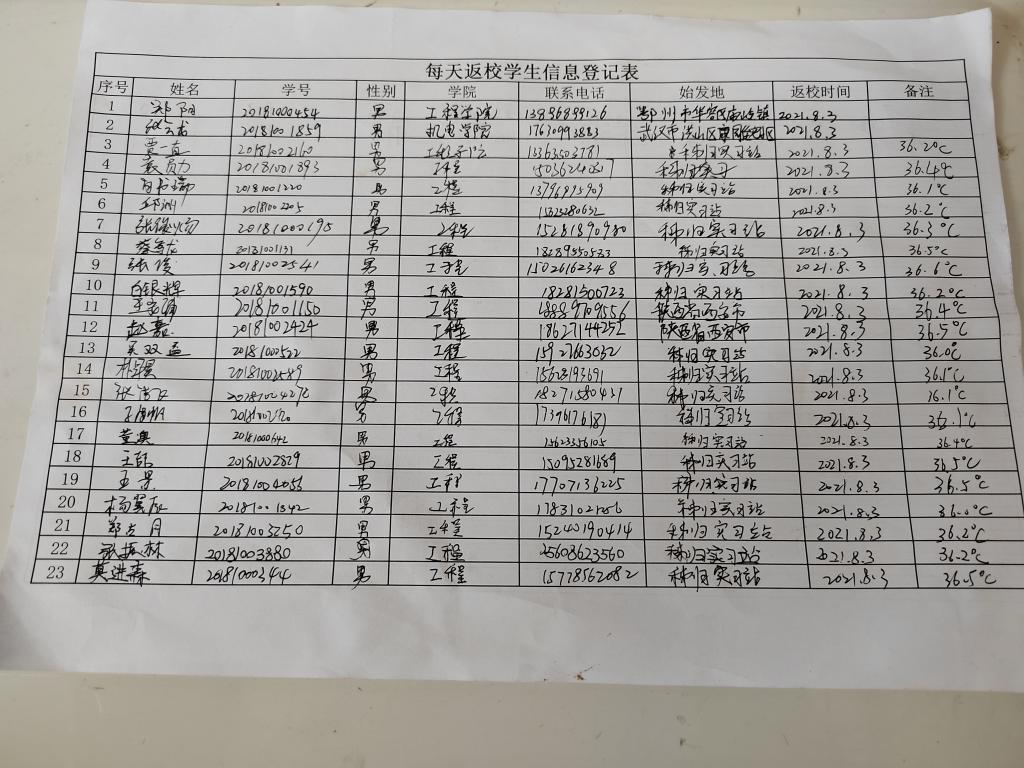 每天返校学生信息登记表
序号 姓名 学号 性别 学院 联系电话 始发地 返校时间 备注
1 郑阳 20181000454 男 工程学院 13896899126 鄂州市华容区 2021.8.3
2 2018100 1859 男 机电学院 17630993883 武汉市洪山区 2021.8.3
3 贾一直 20181002160 男 工程学院 15363503781 秭归实习站 2021.8.3 36.2°C
4 20181001893 男 工程 秭归实习 2021.8.3 36.4°C
5 20181001220 男 工程 13796815909 秭归实习站 2021.8.3 36.1°C
6 邱洲 男 工程 秭归实习站 2021.8.3 36.2°C
7 20181000195 男 工程 15281890980 秭归实习站 2021.8.3 36.3°C
8 20181001131 男 工程 秭归实习站 2021.8.3 36.5°C
9 张俊 20181002541 男 工程 15026162348 秭归实习站 2021.8.3 36.6°C
10 白银辉 20181001590 男 工程 18281500723 秭归实习站 2021.8.3 36.2°C
11 20181001150 男 工程 18889709556 陕西省西安市 2021.8.3 36.4°C
12 赵嘉 20181002424 男 工程 18627144252 陕西省西安市 2021.8.3 36.5°C
13 吴双孟 2018100522 男 工程 15927663032 秭归实习站 2021.8.3 36.0°C
14 20181002589 男 工程 15628193691 秭归实习站 2021.8.3 36.1°C
15 男 工程 18271580431 秭归实习站 2021.8.3 16.1°C
16 男 工程 17396176187 秭归实习站 2021.8.3 36.1°C
17 董澳 20181000642 男 工程 15623556105 秭归实习站 2021.8.3 36.4°C
18 王韬 20181002829 男 工程 15095281689 秭归实习站 2021.8.3 36.5°C
19 王景 20181004053 男 工程 17707136225 秭归实习站 2021.8.3 36.5°C
20 2018100 1342 男 工程 17831021256 秭归实习站 2021.8.3 36.0°C
21 郑吉月 20181003250 男 工程 15240190414 秭归实习站 2021.8.3 36.2°C
22 张振林 20181003880 男 工程 15608623560 秭归实习站 2021.8.3 36.2°C
23 莫进森 20181000344 男 工程 15778562082 秭归实习站 2021.8.3 36.5°C